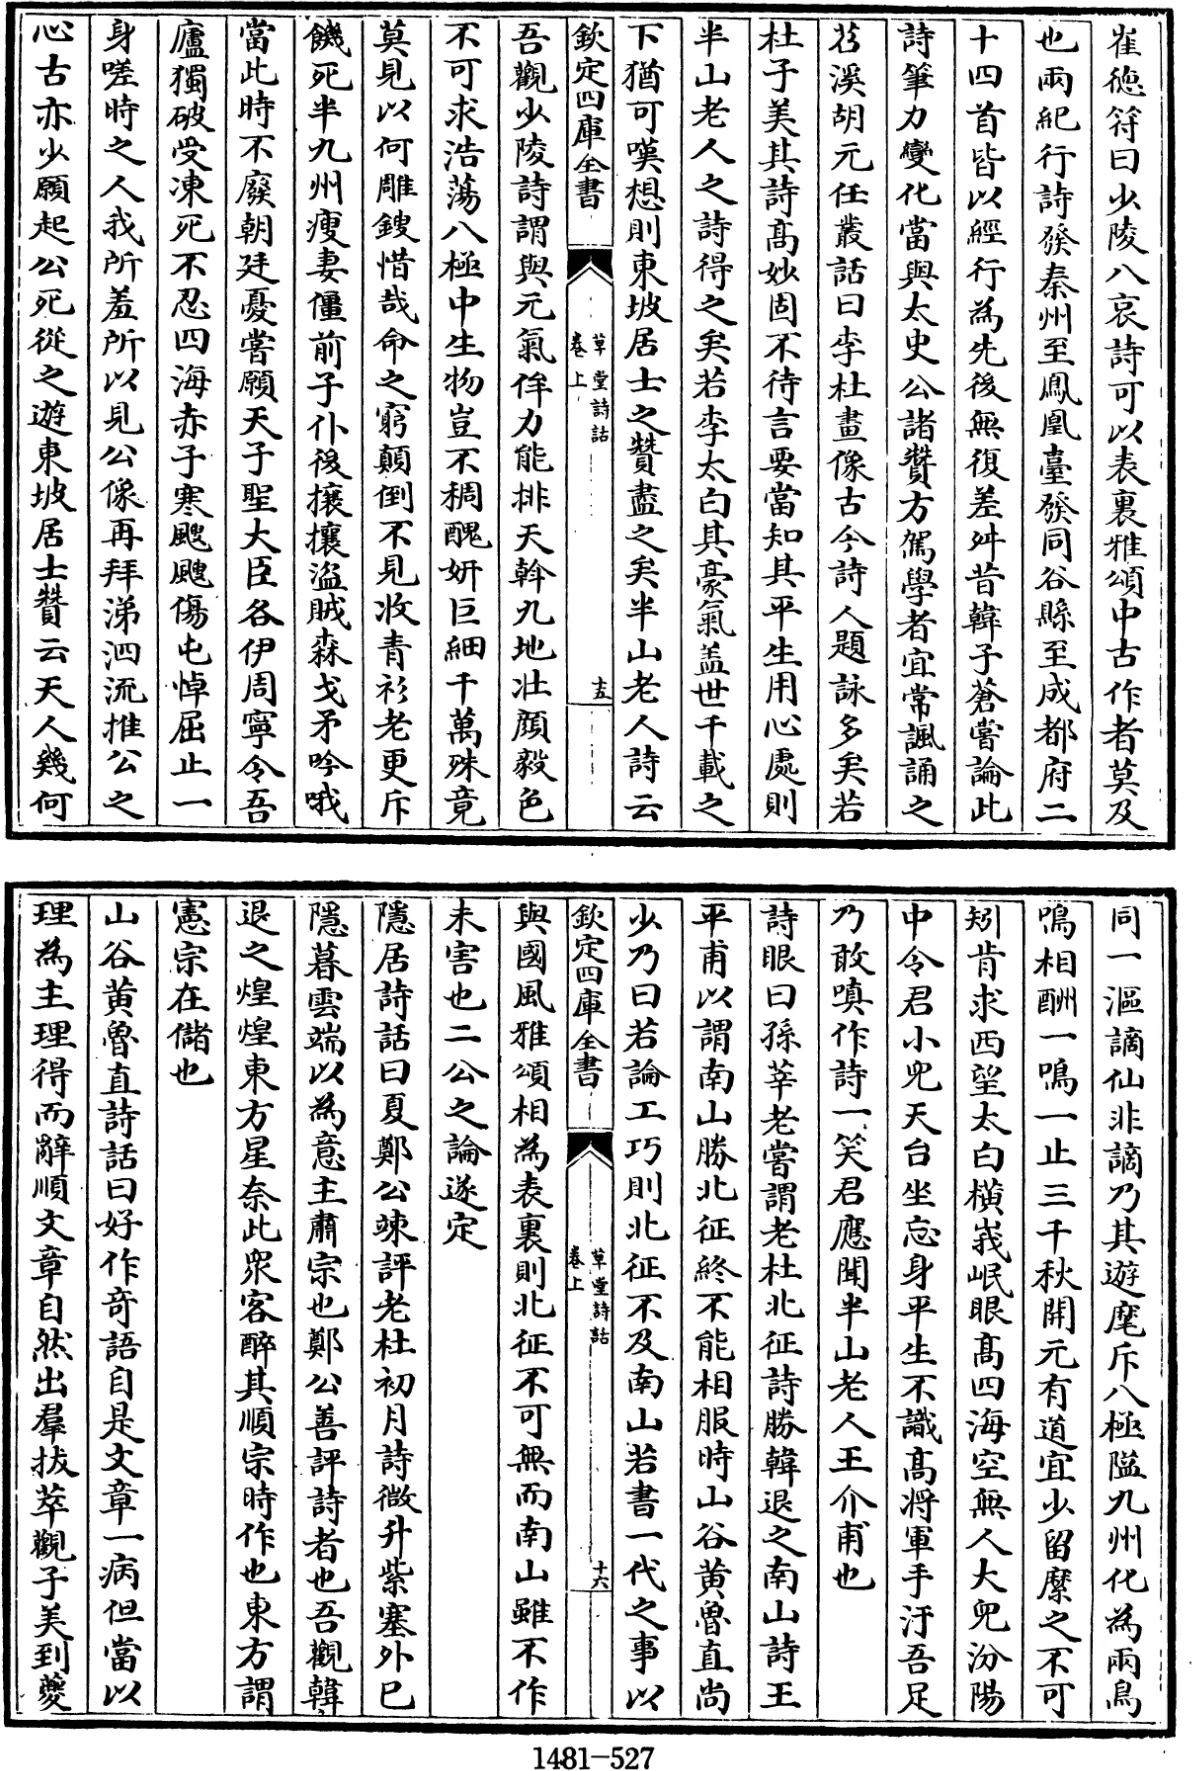 崔德符曰少陵八哀詩可以表裏雅頌中古作者莫及
也兩紀行詩發秦州至鳳凰臺發同谷縣至成都府二
十四首皆以經行為先後無復差舛昔韓子蒼嘗論此
詩筆力變化當與太史公諸贊方駕學者宜常諷誦之
苕溪胡元任叢話曰李杜畫像古今詩人題詠多矣若
杜子美其詩高妙固不待言要當知其平生用心處則
半山老人之詩得之矣若李太白其豪氣蓋世千載之
下猶可嘆想則東坡居士之贊盡之矣半山老人詩云
欽定四庫全書
草堂詩話
卷上
十五
吾觀少陵詩謂與元氣侔力能排天斡九地壯顔毅色
不可求浩蕩八極中生物豈不稠醜妍巨細千萬殊竟
莫見以何雕鎪惜哉命之窮顛倒不見收青衫老更斥
饑死半九州瘦妻僵前子仆後攘攘盜賊森戈矛吟哦
當此時不廢朝廷憂嘗願天子聖大臣各伊周寧令吾
廬獨破受凍死不忍四海赤子寒颼颼傷屯悼屈止一
身嗟時之人我所羞所以見公像再拜涕泗流推公之
心古亦少願起公死從之遊東坡居士贊云天人幾何
同一漚謫仙非謫乃其遊麾斥八極隘九州化為兩鳥
鳴相酬一鳴一止三千秋開元有道宜少留縻之不可
矧肯求西望太白橫峩岷眼高四海空無人大兒汾陽
中令君小兒天台坐忘身平生不識高將軍手汙吾足
乃敢嗔作詩一笑君應聞半山老人王介甫也
詩眼曰孫莘老嘗謂老杜北征詩勝韓退之南山詩王
平甫以謂南山勝北征終不能相服時山谷黄魯直尚
少乃曰若論工巧則北征不及南山若書一代之事以
欽定四庫全書
草堂詩話
卷上
十六
與國風雅頌相為表裏則北征不可無而南山雖不作
未害也二公之論遂定
隱居詩話曰夏鄭公竦評老杜初月詩微升紫塞外已
隱暮雲端以為意主肅宗也鄭公善評詩者也吾觀韓
退之煌煌東方星奈此衆客醉其順宗時作也東方謂
憲宗在儲也
山谷黄魯直詩話曰好作奇語自是文章一病但當以
理為主理得而辭順文章自然出羣拔萃觀子美到夔
1481-527